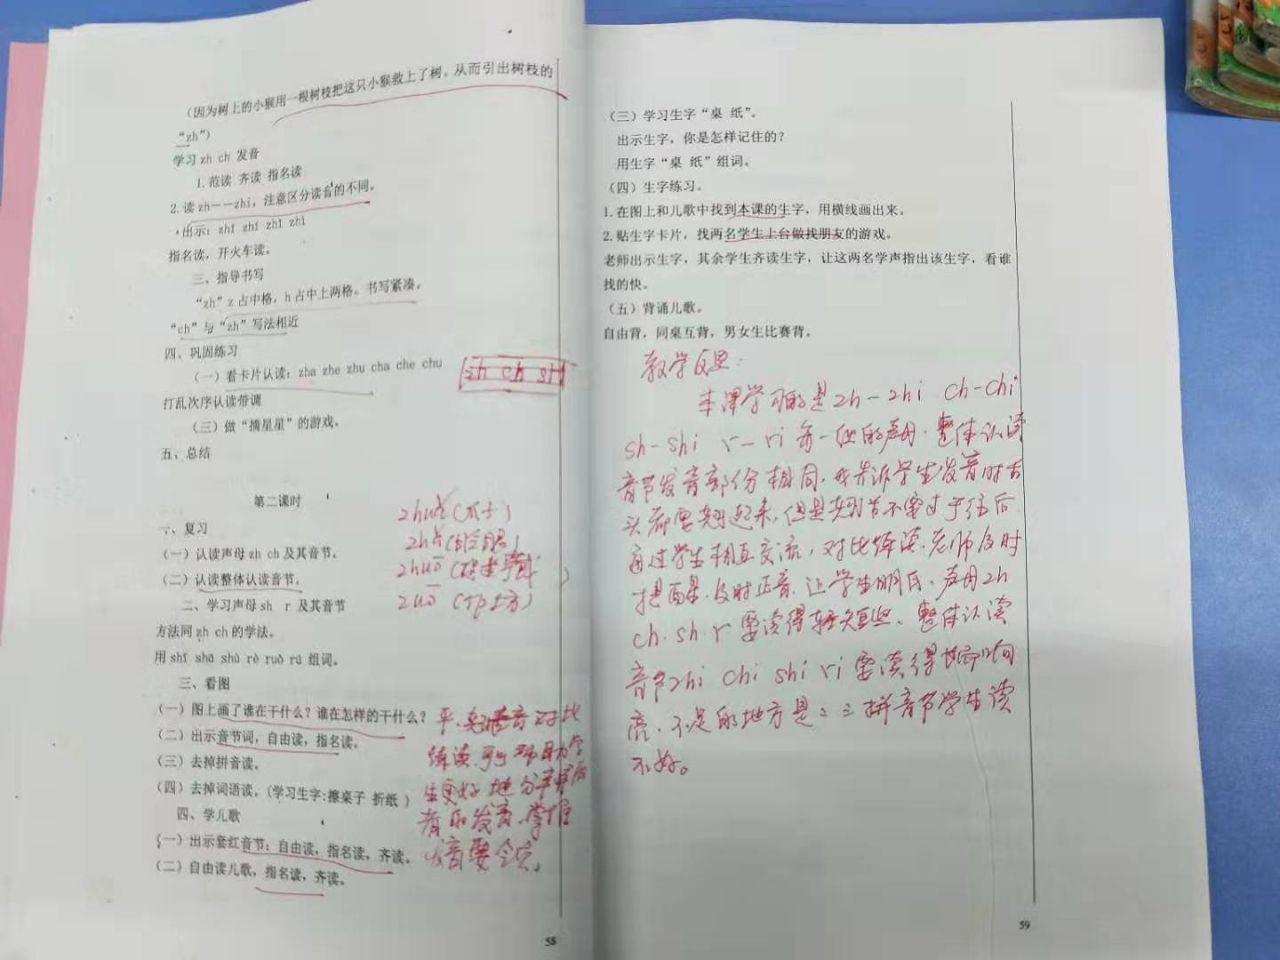 （因为树上的小猴用一根树枝把这只小猴救上了树。从而引出树枝的
“zh”）
学习 zh ch 发音
1.范读 齐读 指名读
2.读 zh－－zhi，注意区分读音的不同。
出示：zhī zhí zhǐ zhì
指名读，开火车读。
三、指导书写
“zh” z 占中格，h 占中上两格。书写紧凑。
“ch”与“zh”写法相近
四、巩固练习
（一）看卡片认读：zha zhe zhu cha che chu
zh ch sh
打乱次序认读带调
（三）做“摘星星”的游戏。
五、总结
第二课时
一、复习
（一）认读声母 zh ch 及其音节。
（二）认读整体认读音节。
二、学习声母 sh r 及其音节
方法同 zh ch 的学法。
用 shī shā shù rè ruò rú 组词。
三、看图
（一）图上画了谁在干什么？谁在怎样的干什么？
（二）出示音节词，自由读，指名读。
（三）去掉拼音读。
（四）去掉词语读，（学习生字:擦桌子 折纸 ）
四、学儿歌
（一）出示套红音节：自由读，指名读，齐读。
（二）自由读儿歌，指名读，齐读。
对比
练读
生更好地分
的发音，掌握
58
（三）学习生字“桌 纸”。
出示生字，你是怎样记住的？
用生字“桌 纸”组词。
（四）生字练习。
1.在图上和儿歌中找到本课的生字，用横线画出来。
2.贴生字卡片，找两名学生上台做找朋友的游戏。
老师出示生字，其余学生齐读生字，让这两名学声指出该生字，看谁
找的快。
（五）背诵儿歌。
自由背，同桌互背，男女生比赛背。
教学反思：
本课学习的是 zh－zhi ch－chi
sh－shi r－ri 每一组的声母，整体认读
音节发音部份相同，我告诉学生发音时舌
头都要翘起来，但是翘舌不要过于往后
通过学生相互交流，对比练读，老师及时
提醒，及时正音，让学生明白，声母 zh
ch．sh．r 要读得轻短些，整体认读
音节 zhi chi shi ri 要读得响
亮，不足的地方是：三拼音节学生读
不好。
59